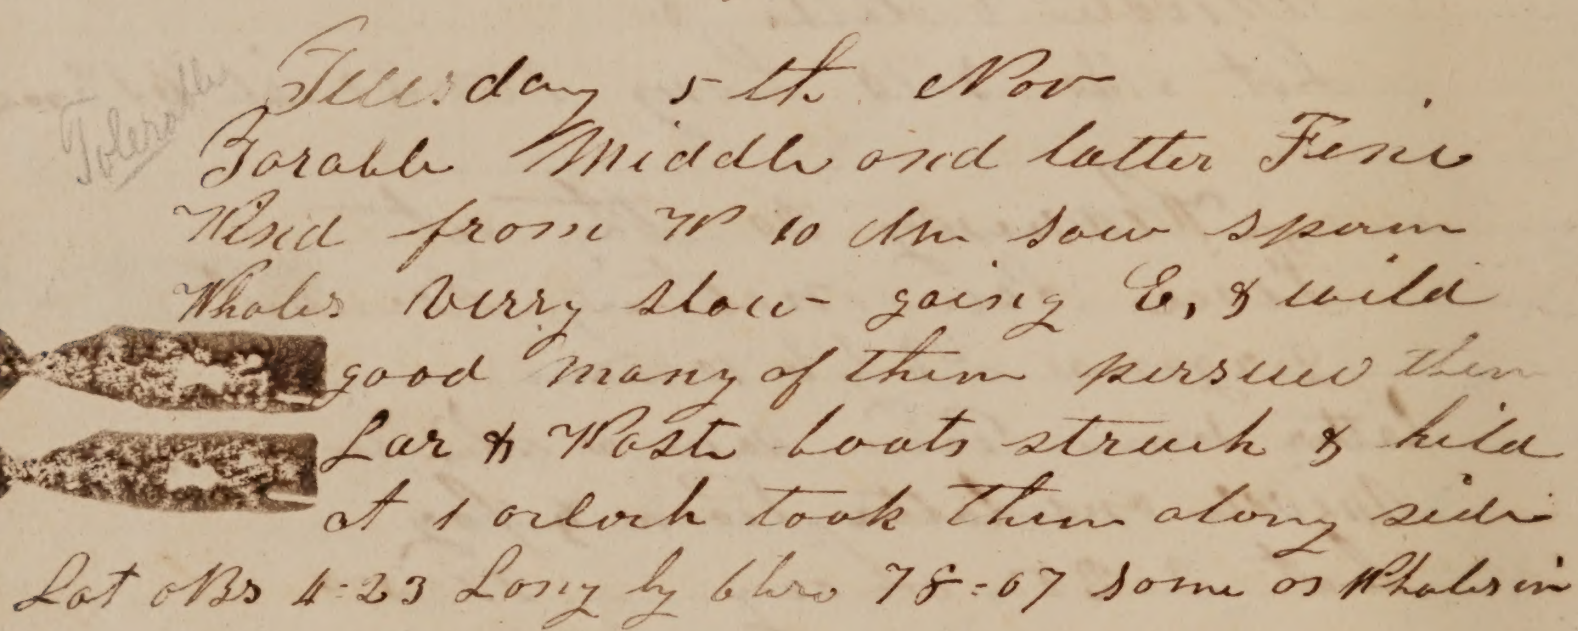 Tuesday 5th Nov
Tolerable
Torable Middle and latter Fine
Wind from W 10 Am saw sperm
Whales verry slow going E, & wild
good many of them persued them
Lar & Wast boats struck & kild
at 1 oclock took them along side
Lat oBs 4=23 Long by Chro 78=07 some os Whales in